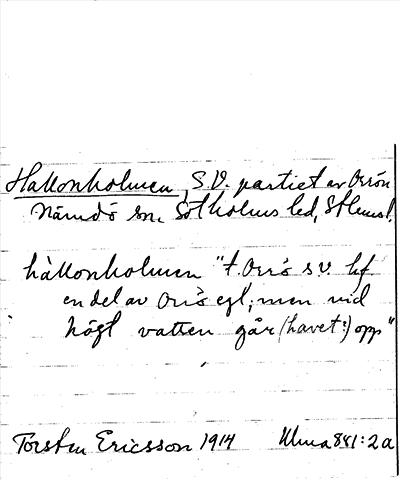 Hallonholmen, S.V. partiet av Orrön
Nämdö sn. Sotholms hd, Sthlms l.
hàllonholmen "t. Orrö s.v. hf
en del av Orrö egl; men vid
högt vatten går (havet:) opp"
Torsten Ericsson 1914 Ulma 881:2a